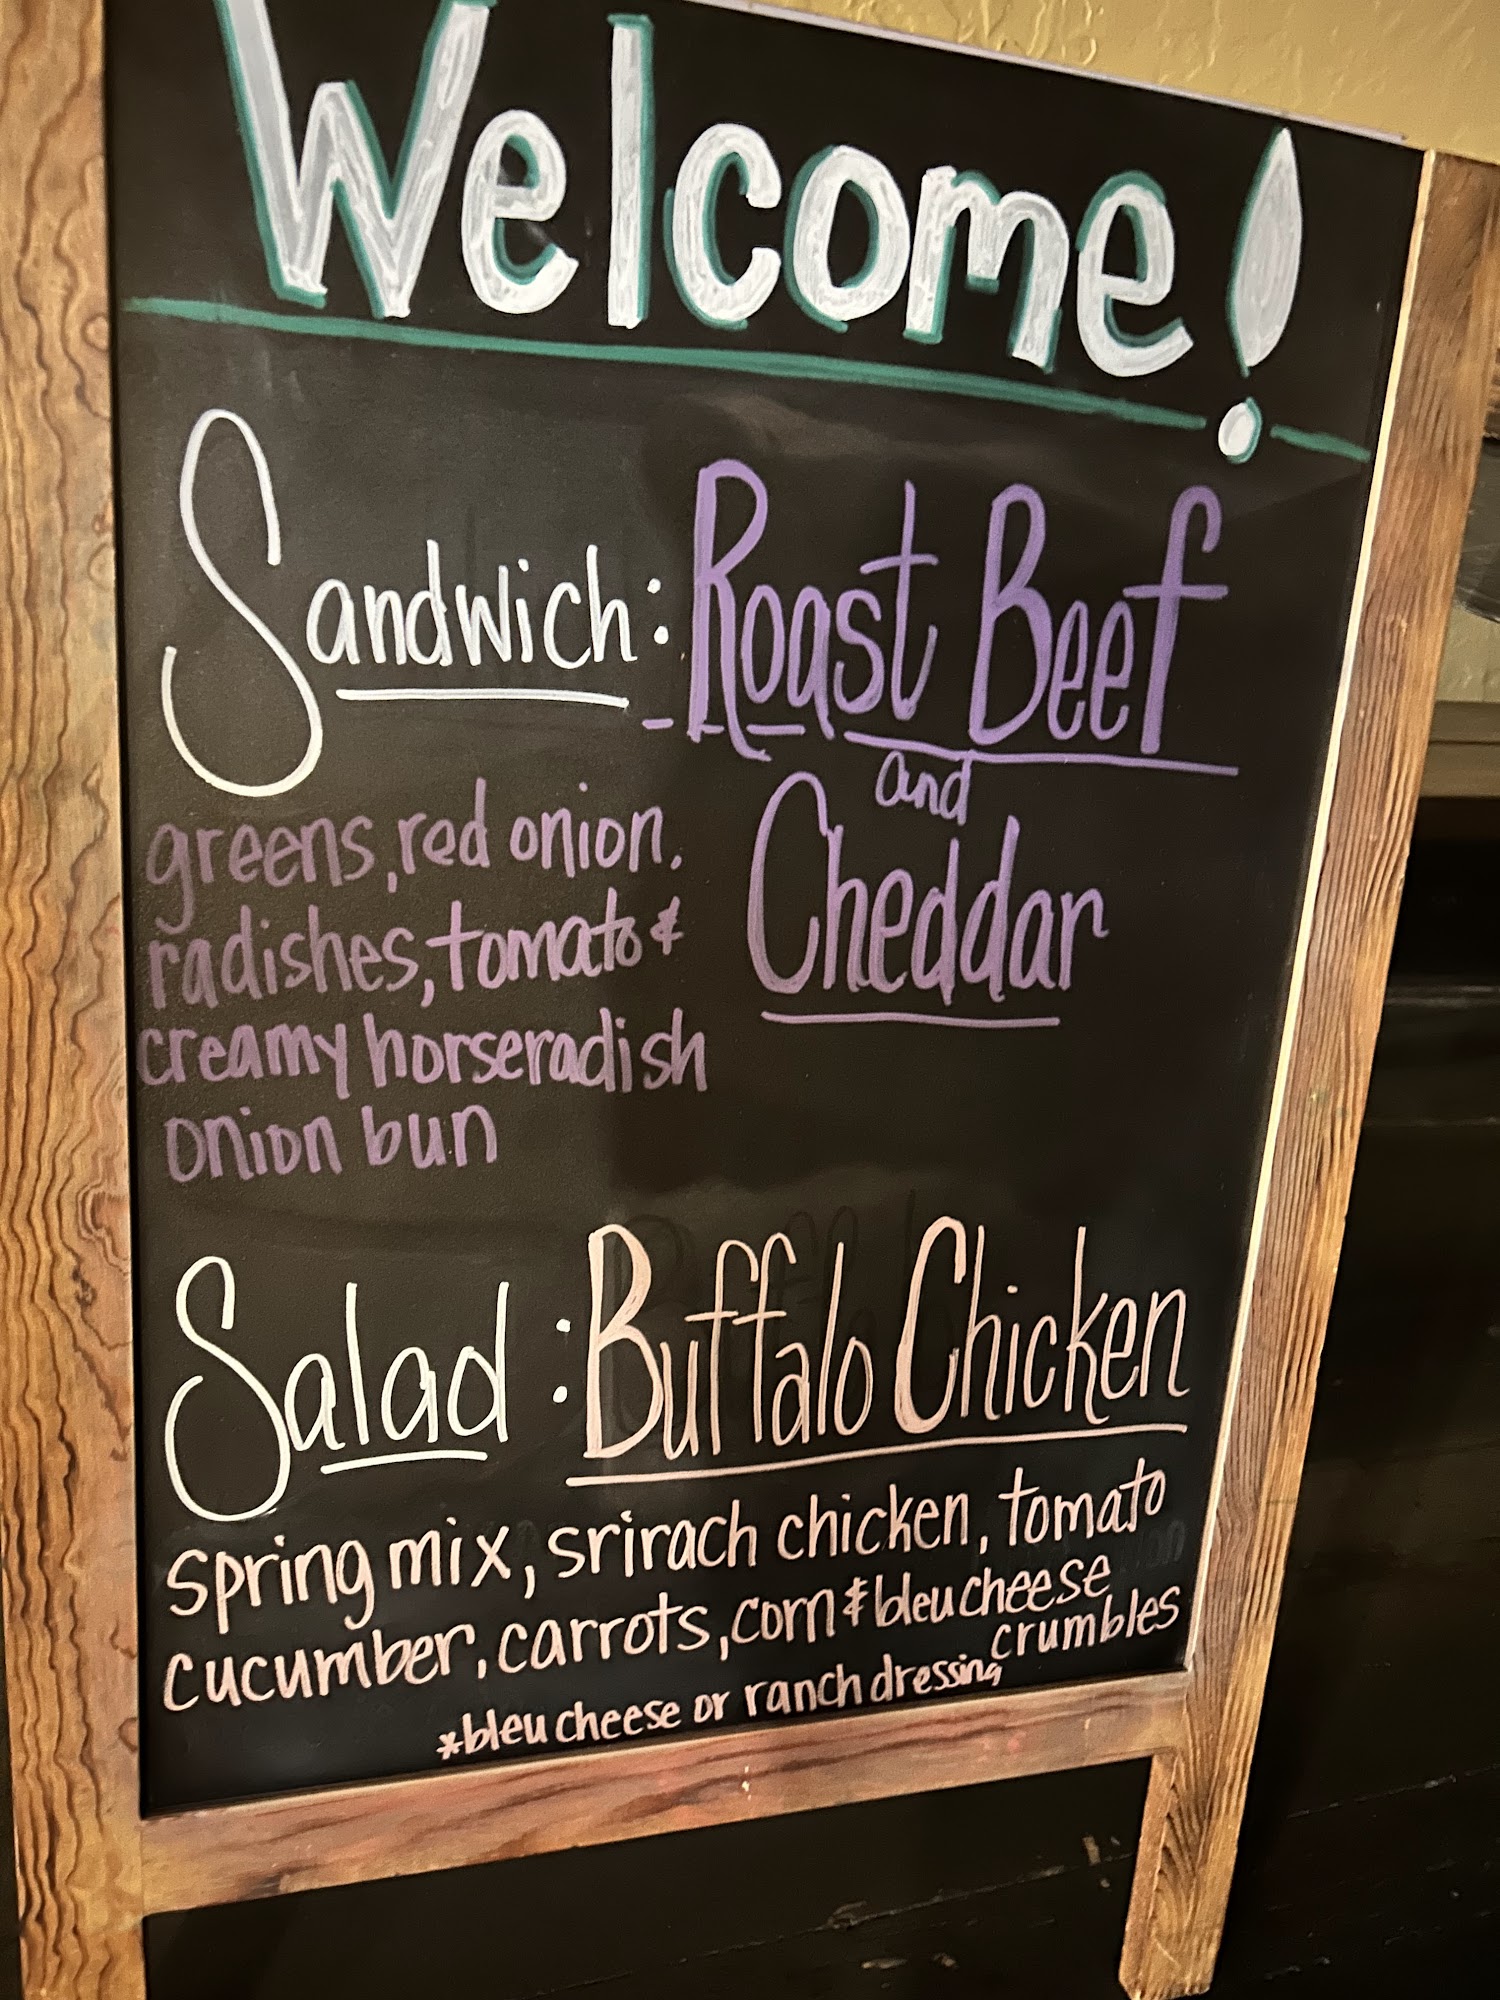 Welcome!
Sandwich: Roast Beef
and
Cheddar
greens, red onion.
radishes, tomato &
creamy horseradish
onion bun
Salad: Buffalo Chicken
spring mix, srirach chicken, tomato
cucumber, carrots, corn & bleu cheese
crumbles
*bleu cheese or ranch dressing